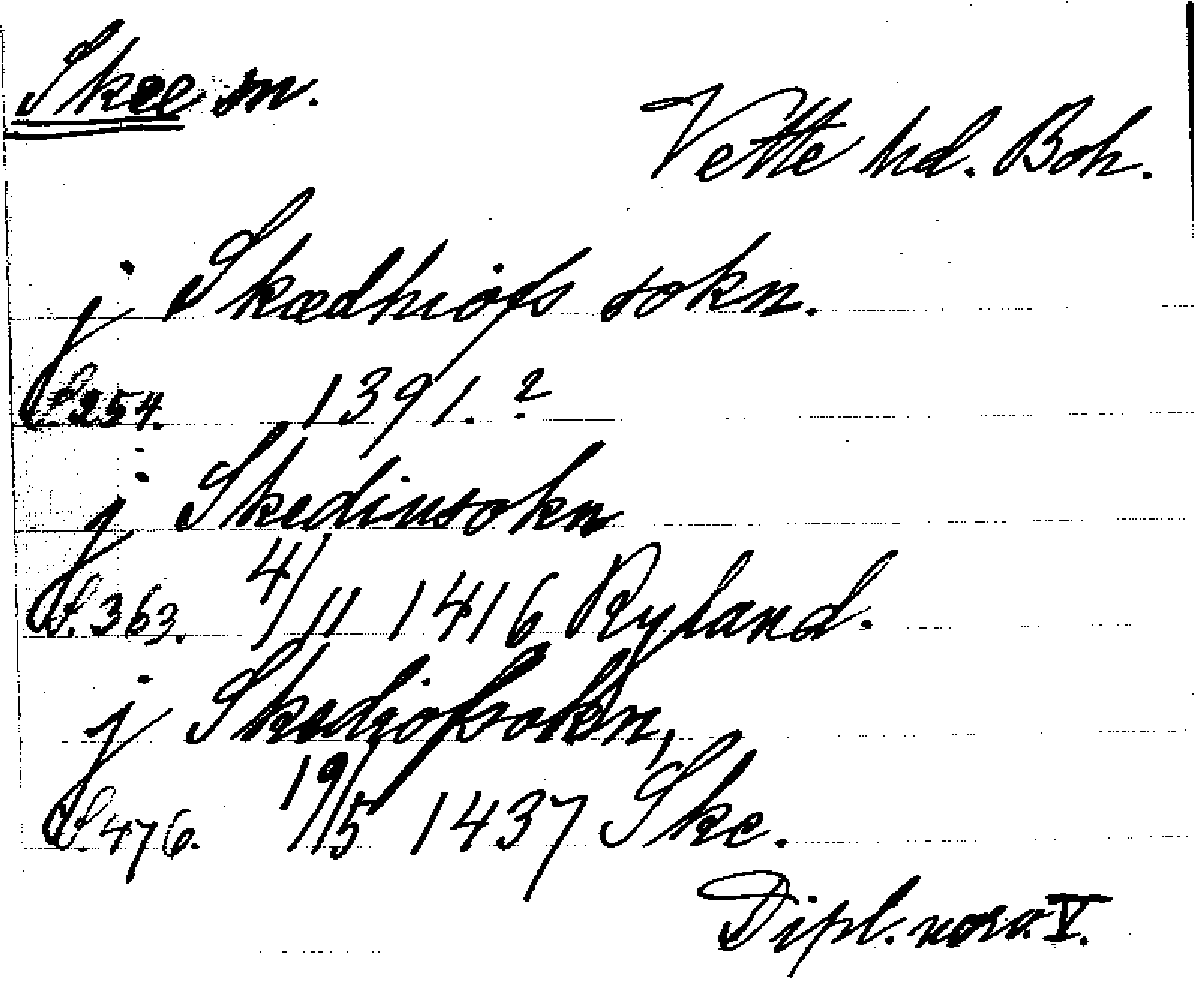 Skee sn.
Vette hd. Boh.
j Skædhiofs sokn.
S. 254. 1391.?
j Skediusokn
S. 363. 4/11 1416 Ryland.
j Skediofsokn,
S. 476. 19/5 1437 Ske.
Dipl. norv. V.